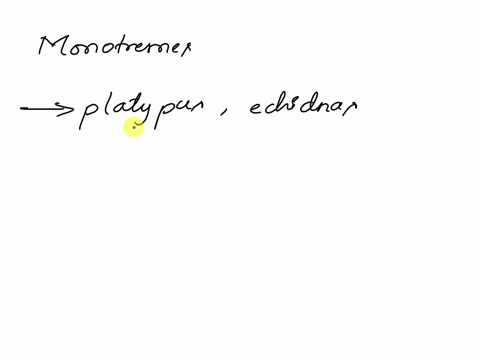 Monotremes
→ platypus, echidnas